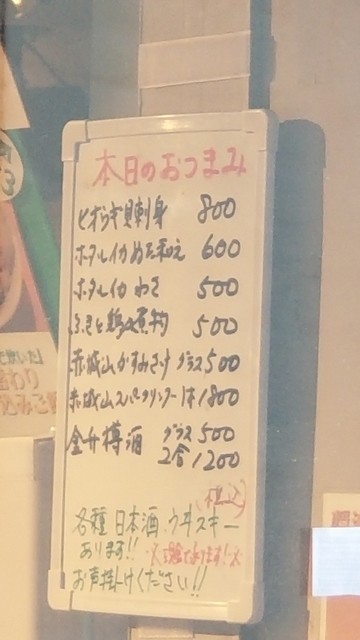 本日のおつまみ
ヒオウギ貝刺身 800
ホタルイカぬた和え 600
ホタルイカわさ 500
ふきと鶏の煮物 500
赤城山かすみさけ グラス500
赤城山スパークリング 1本1800
金升樽酒 グラス500
2合1200
(税込)
各種日本酒、ウヰスキー
あります!!
お声掛けください!!